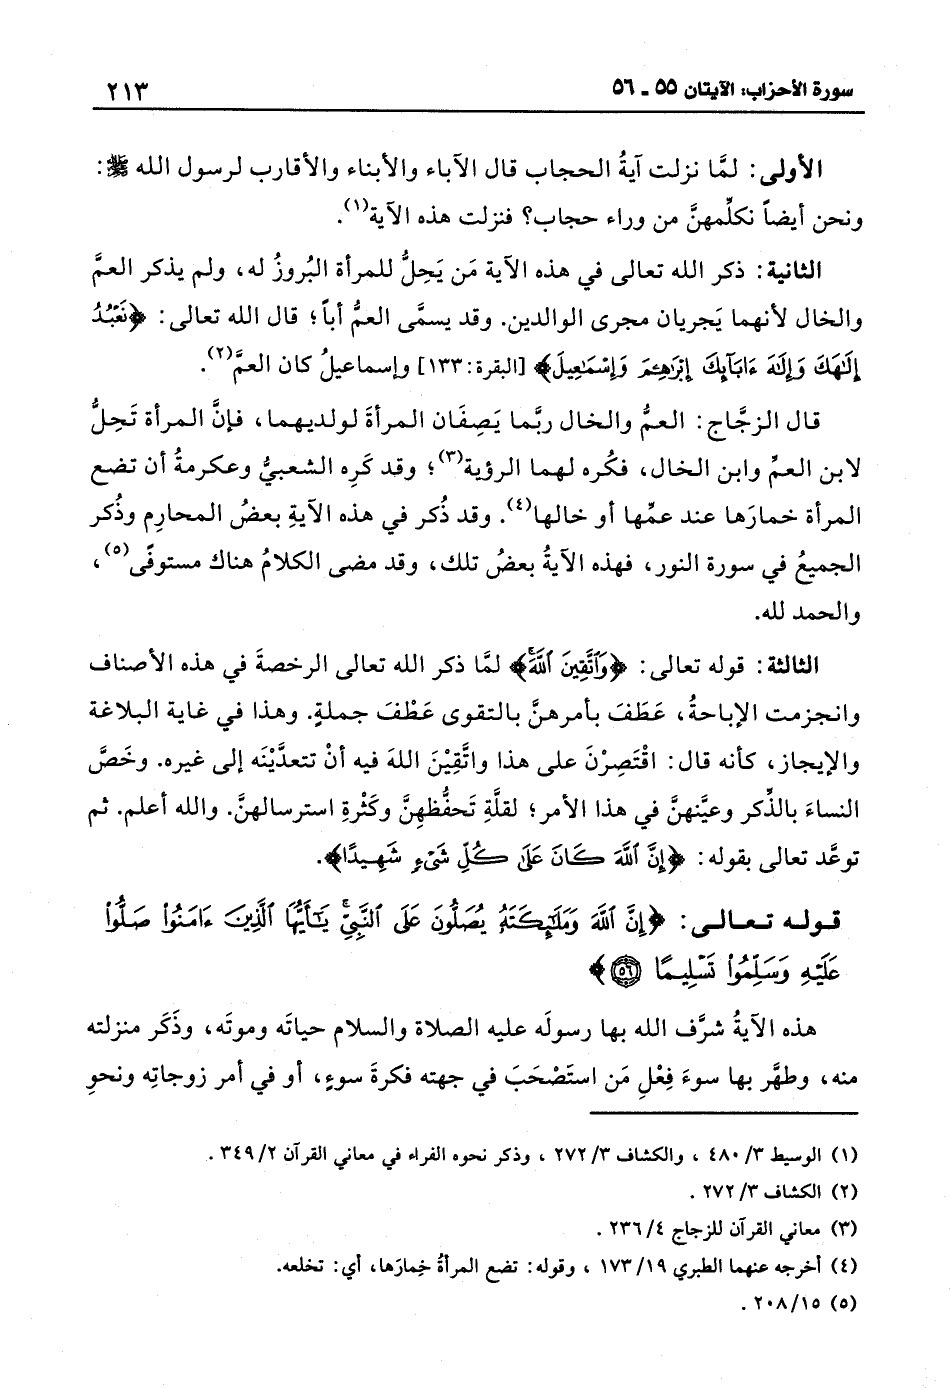 سورة الأحزاب: الآيتان ٥٥ ـ ٥٦
٢١٣
الأولى: لمَّا نزلت آيةُ الحجاب قال الآباء والأبناء والأقارب لرسول الله ﷺ:
ونحن أيضاً نكلِّمهنَّ من وراء حجاب؟ فنزلت هذه الآية(١).
الثانية: ذكر الله تعالى في هذه الآية مَن يَحِلُّ للمرأة البُروزُ له، ولم يذكر العمَّ
والخال لأنهما يَجريان مجرى الوالدين. وقد يسمَّى العمُّ أباً؛ قال الله تعالى: ﴿نَعْبُدُ
إِلَٰهَكَ وَإِلَٰهَ ءَابَآئِكَ إِبْرَٰهِـۧمَ وَإِسْمَٰعِيلَ﴾ [البقرة: ١٣٣] وإسماعيلُ كان العمَّ(٢).
قال الزجَّاج: العمُّ والخال ربَّما يَصِفَان المرأةَ لولديهما، فإنَّ المرأة تَحِلُّ
لابن العمِّ وابن الخال، فكُره لهما الرؤية(٣)؛ وقد كَرِه الشعبيُّ وعكرمةُ أن تضع
المرأة خمارَها عند عمِّها أو خالها(٤). وقد ذُكر في هذه الآيةِ بعضُ المحارِم وذُكر
الجميعُ في سورة النور، فهذه الآيةُ بعضُ تلك، وقد مضى الكلامُ هناك مستوفًى(٥)،
والحمد لله.
الثالثة: قوله تعالى: ﴿وَٱتَّقِينَ ٱللَّهَۚ﴾ لمَّا ذكر الله تعالى الرخصةَ في هذه الأصناف
وانجزمت الإباحةُ، عَطَفَ بأمرهنَّ بالتقوى عَطْفَ جملةٍ. وهذا في غاية البلاغة
والإيجاز، كأنه قال: اقْتَصِرْنَ على هذا واتَّقِيْنَ اللهَ فيه أنْ تتعدَّيْنَه إلى غيره. وخَصَّ
النساءَ بالذِّكر وعيَّنهنَّ في هذا الأمر؛ لقلَّةِ تَحفُّظِهنَّ وكَثْرةِ استرسالهنَّ. والله أعلم. ثم
توعَّد تعالى بقوله: ﴿إِنَّ ٱللَّهَ كَانَ عَلَىٰ كُلِّ شَىْءٍ شَهِيدًا﴾.
قوله تعالى: ﴿إِنَّ ٱللَّهَ وَمَلَٰٓئِكَتَهُۥ يُصَلُّونَ عَلَى ٱلنَّبِىِّۚ يَٰٓأَيُّهَا ٱلَّذِينَ ءَامَنُوا۟ صَلُّوا۟
عَلَيْهِ وَسَلِّمُوا۟ تَسْلِيمًا ٥٦﴾
هذه الآيةُ شرَّف الله بها رسولَه عليه الصلاة والسلام حياتَه وموتَه، وذَكَر منزلته
منه، وطهَّر بها سوءَ فِعْلِ مَن استَصْحَبَ في جهته فكرةَ سوءٍ، أو في أمر زوجاتِه ونحوِ
(١) الوسيط ٣/ ٤٨٠ ، والكشاف ٣/ ٢٧٢ ، وذكر نحوه الفراء في معاني القرآن ٢/ ٣٤٩ .
(٢) الكشاف ٣/ ٢٧٢ .
(٣) معاني القرآن للزجاج ٤/ ٢٣٦ .
(٤) أخرجه عنهما الطبري ١٩/ ١٧٣ ، وقوله: تضع المرأةُ خِمارَها، أي: تخلعه.
(٥) ١٥/ ٢٠٨ .